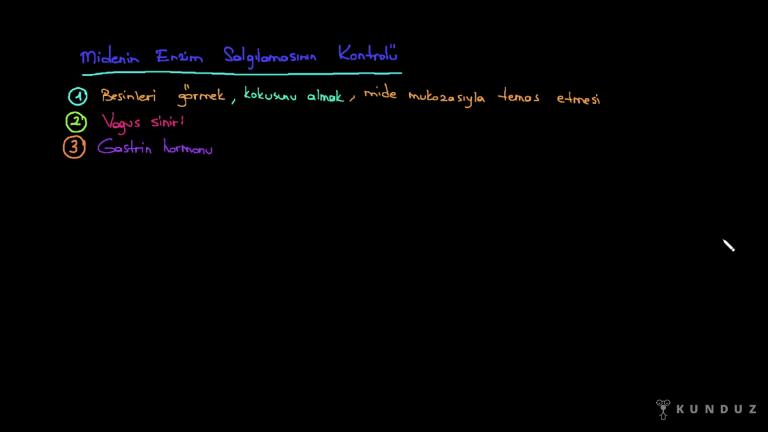 Midenin Enzim Salgılamasının Kontrolü
1 Besinleri görmek, kokusunu almak, mide mukozasıyla temas etmesi
2 Vagus siniri
3 Gastrin hormonu
KUNDUZ